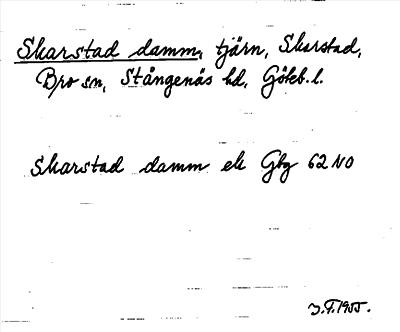 Skarstad damm, tjärn, Skarstad,
Bro sn, Stångenäs hd, Göteb. l.
Skarstad damm ek Gbg 62 NO
J.F. 1955.